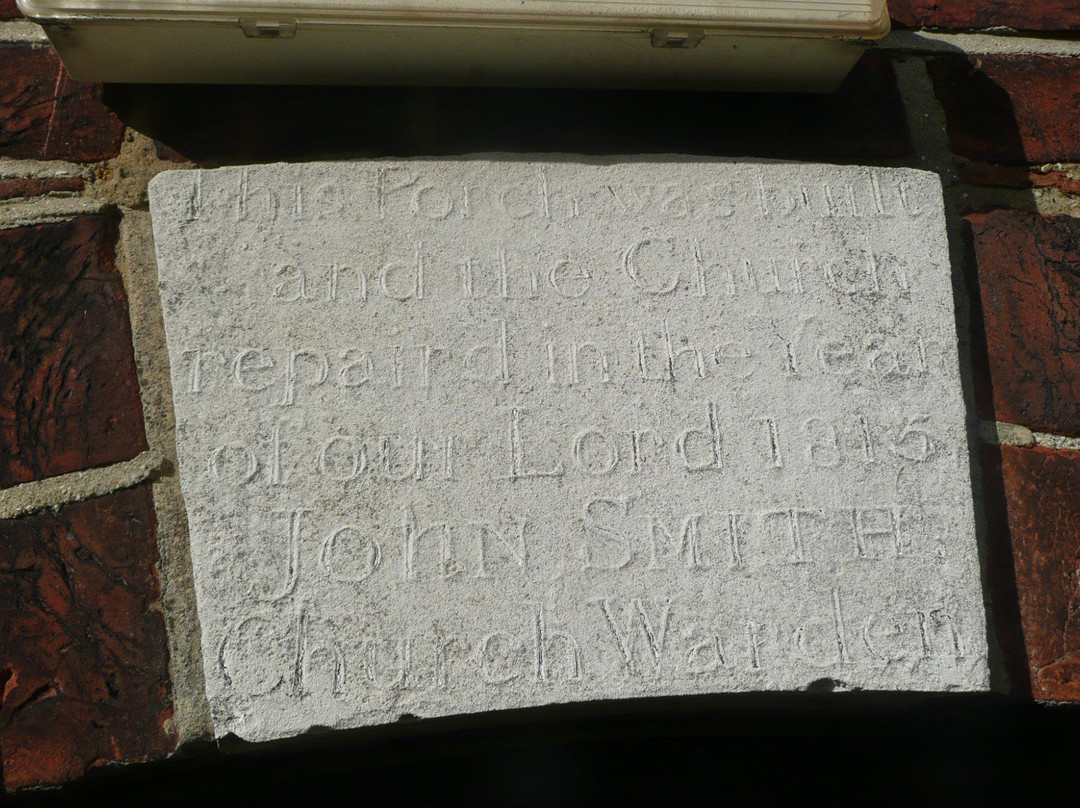 This Porch was built
and the Church
repaird in the Year
of our Lord 1815
JOhN SMITH
Church Warden